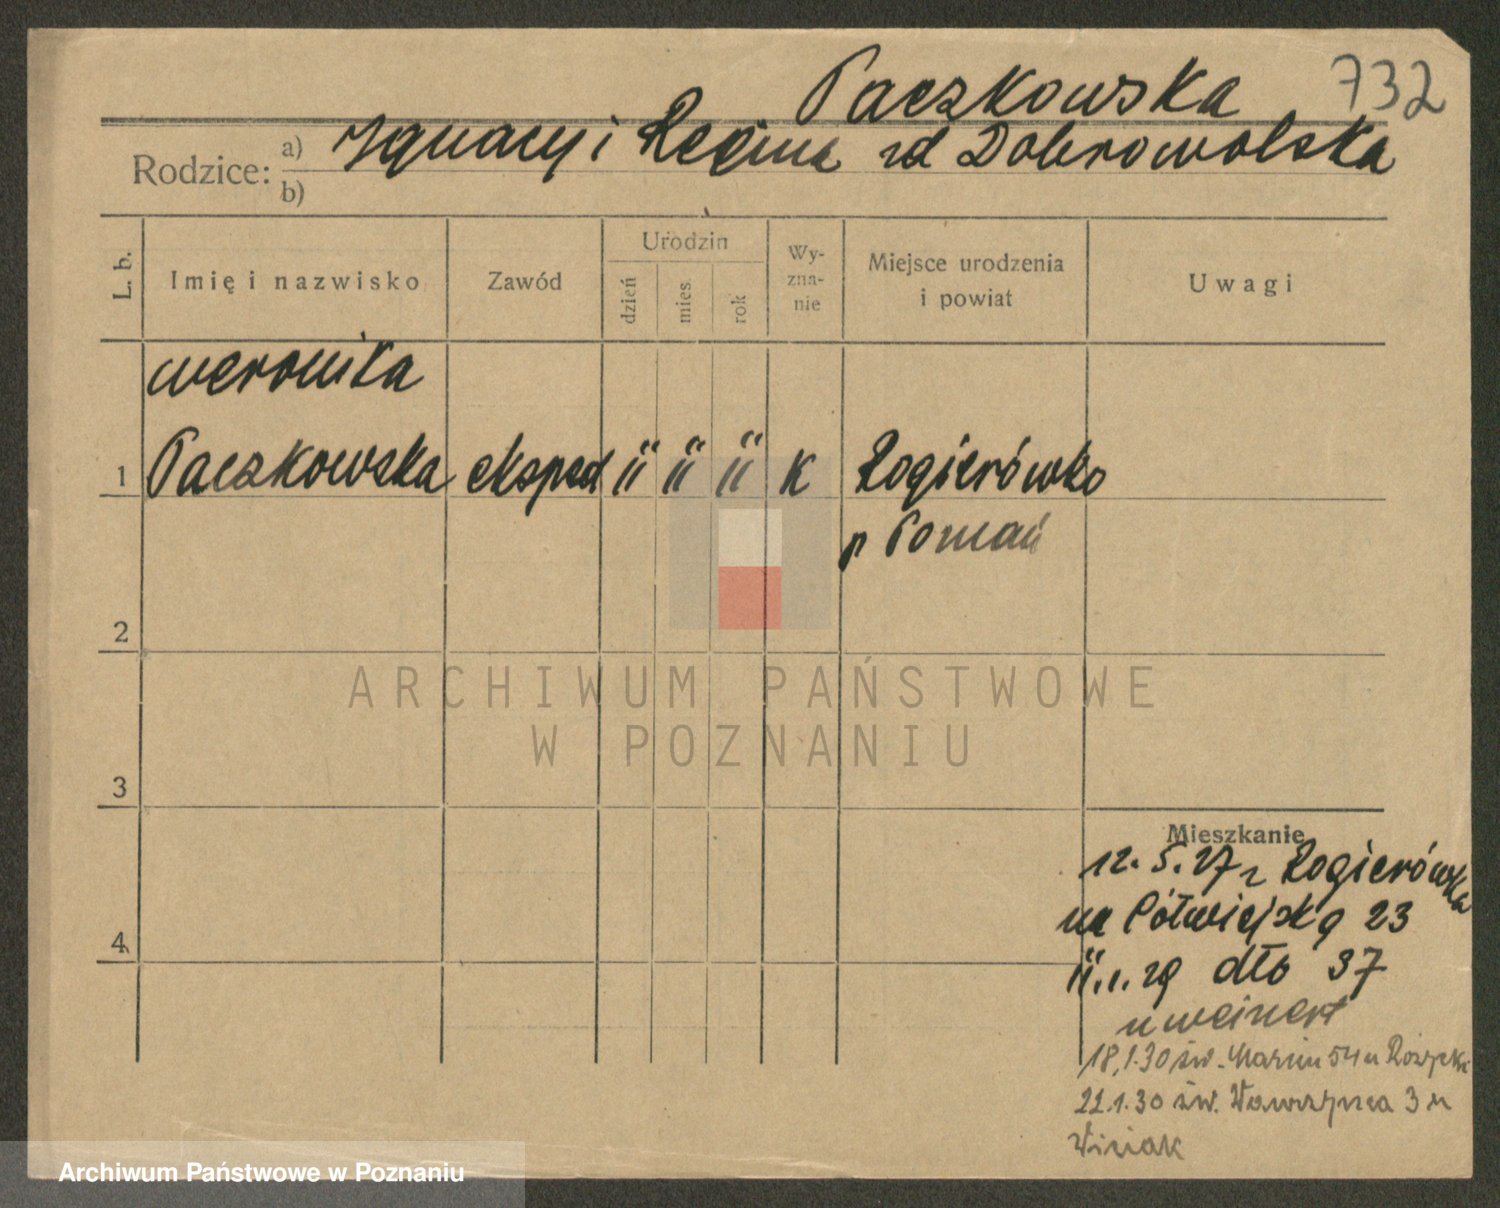 Paczkowska 732
Rodzice: a) Ignacy i Regina zd Dobrowolska
b)
L. b. Imię i nazwisko Zawód Urodzin dzień mies. rok Wy-zna-nie Miejsce urodzenia i powiat Uwagi
Weronika
1 Paczkowska eksped 11 11 11 K Rogierówko
p Poznań
2
ARCHIWUM PAŃSTWOWE
W POZNANIU
3
Mieszkanie
12. 5. 27 z Rogierówka
na Półwiejską 23
4
11. 1. 29 dto 37
u Weinert
18.1.30 św. Marcin 54 u Rożycki
22.1.30 św. Wawrzyńca 3 u
Wiziak
Archiwum Państwowe w Poznaniu